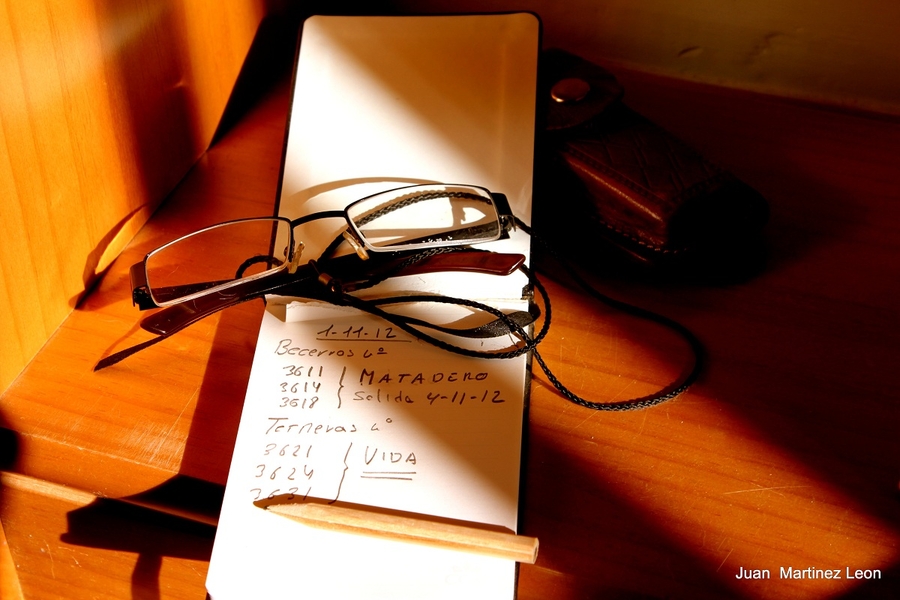 1-11-12
Becerros nº
3611
3614 } MATADERO
3618 Salida 4-11-12
Terneras nº
3621
3624 } VIDA
3631
Juan Martinez Leon